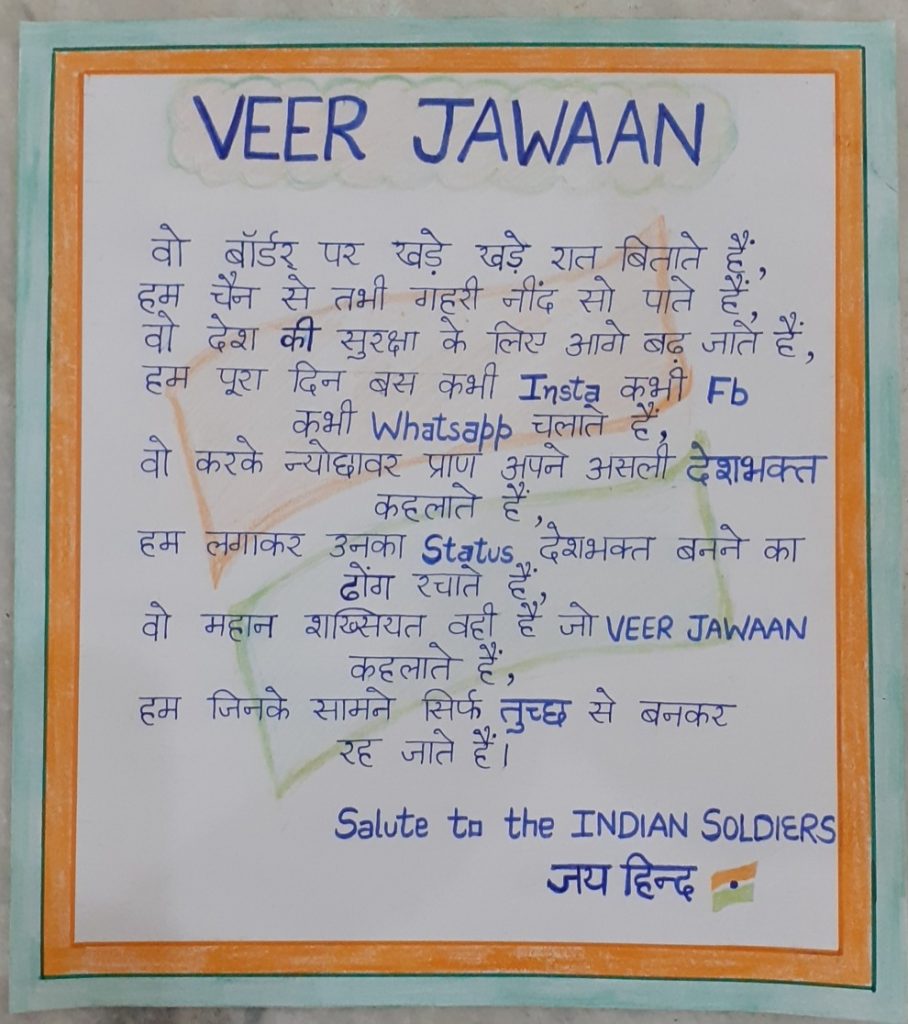 VEER JAWAAN
वो बॉर्डर् पर खड़े खड़े रात बिताते हैं,
हम चैन से तभी गहरी नींद सो पाते हैं,
वो देश की सुरक्षा के लिए आगे बढ़ जाते हैं,
हम पूरा दिन बस कभी Insta कभी Fb
कभी Whatsapp चलाते हैं,
वो करके न्योछावर प्राण अपने असली देशभक्त
कहलाते हैं,
हम लगाकर उनका Status, देशभक्त बनने का
ढोंग रचाते हैं,
वो महान शख्सियत वही हैं जो VEER JAWAAN
कहलाते हैं,
हम जिनके सामने सिर्फ तुच्छ से बनकर
रह जाते हैं।
Salute to the INDIAN SOLDIERS
जय हिन्द